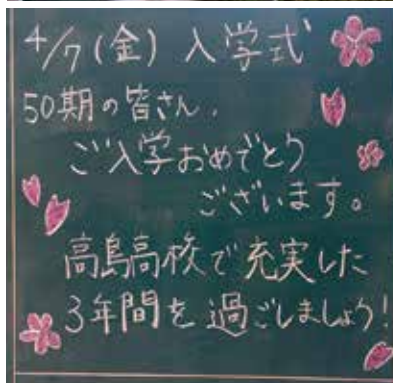 4/7(金) 入学式
50期の皆さん、
ご入学おめでとう
ございます。
高島高校で充実した
3年間を過ごしましょう!